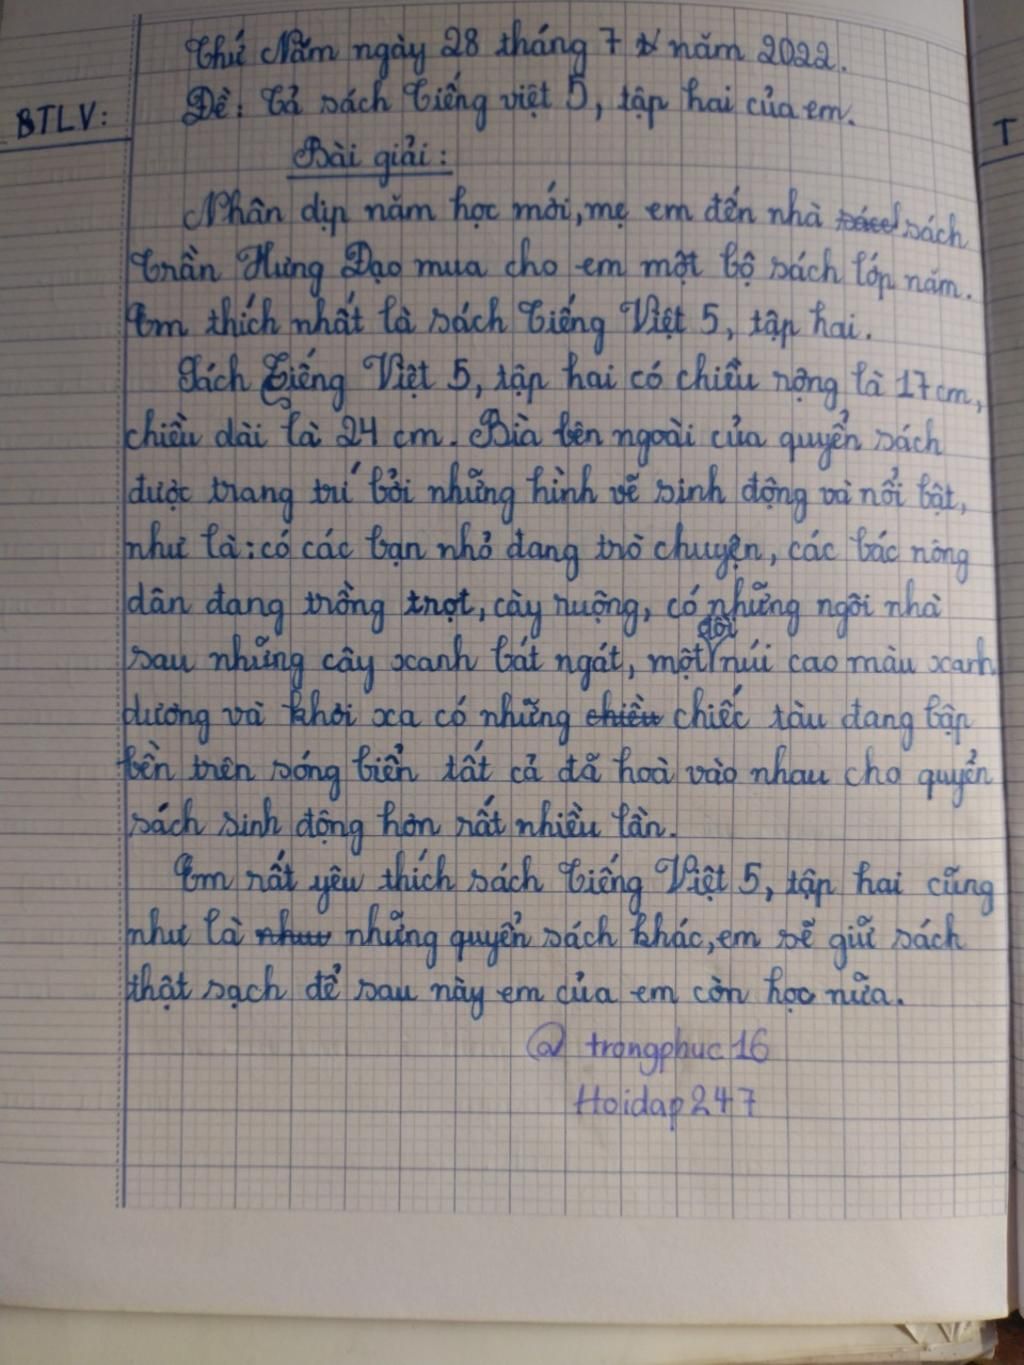 Thứ Năm ngày 28 tháng 7 năm 2022.
BTLV:
Đề: Tả sách Tiếng việt 5, tập hai của em.
T
Bài giải:
Nhân dịp năm học mới, mẹ em đến nhà sách
Trần Hưng Đạo mua cho em một bộ sách lớp năm.
Em thích nhất là sách Tiếng Việt 5, tập hai.
Sách Tiếng Việt 5, tập hai có chiều rộng là 17 cm,
chiều dài là 24 cm. Bìa bên ngoài của quyển sách
được trang trí bởi những hình vẽ sinh động và nổi bật,
như là: có các bạn nhỏ đang trò chuyện, các bác nông
dân đang trồng trọt, cày ruộng, có những ngôi nhà
sau những cây xanh bát ngát, một đồi núi cao màu xanh
dương và khơi xa có những chiếc tàu đang bập
bền trên sóng biển tất cả đã hoà vào nhau cho quyển
sách sinh động hơn rất nhiều lần.
Em rất yêu thích sách Tiếng Việt 5, tập hai cũng
như là những quyển sách khác, em sẽ giữ sách
thật sạch để sau này em của em còn học nữa.
@ trongphuc16
Hoidap247